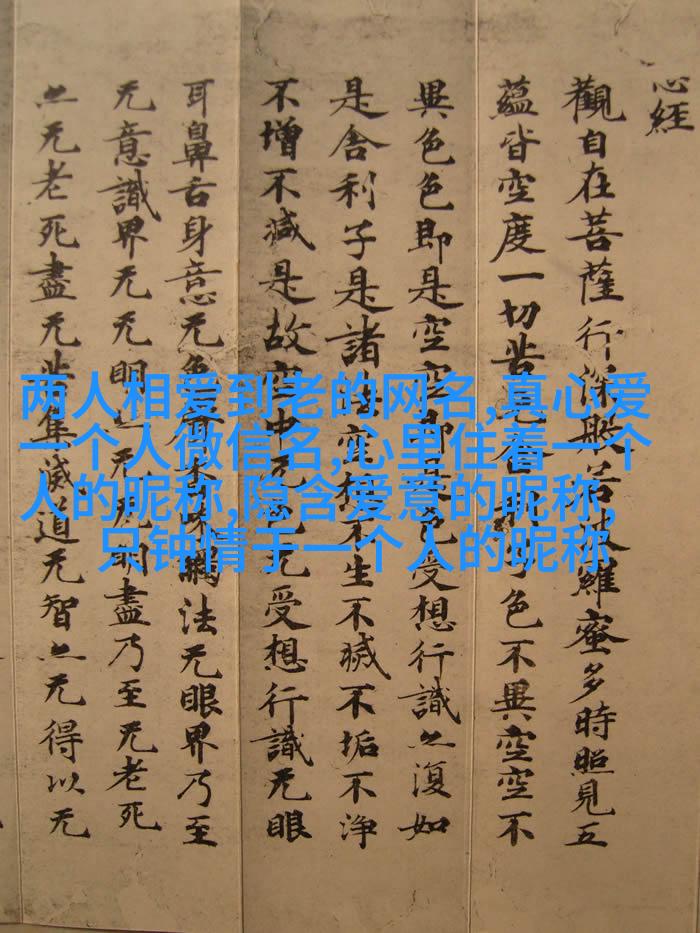 心經
觀自在菩薩行深般若波羅蜜多時照見五
蘊皆空度一切苦厄舍利子色不異空空不
異色色即是空空即是色受想行識亦復如
是舍利子是諸法空相不生不滅不垢不淨
不增不減是故空中无色无受想行識无眼
耳鼻舌身意无色聲香味觸法无眼界乃至
无意識界无无明亦无无明盡乃至无老死
亦无老死盡无苦集滅道无智亦无得以无
两人相爱到老的网名,真心爱
一个人微信名,心里住着一个
人的昵称,隐含爱意的昵称,
只钟情于一个人的昵称